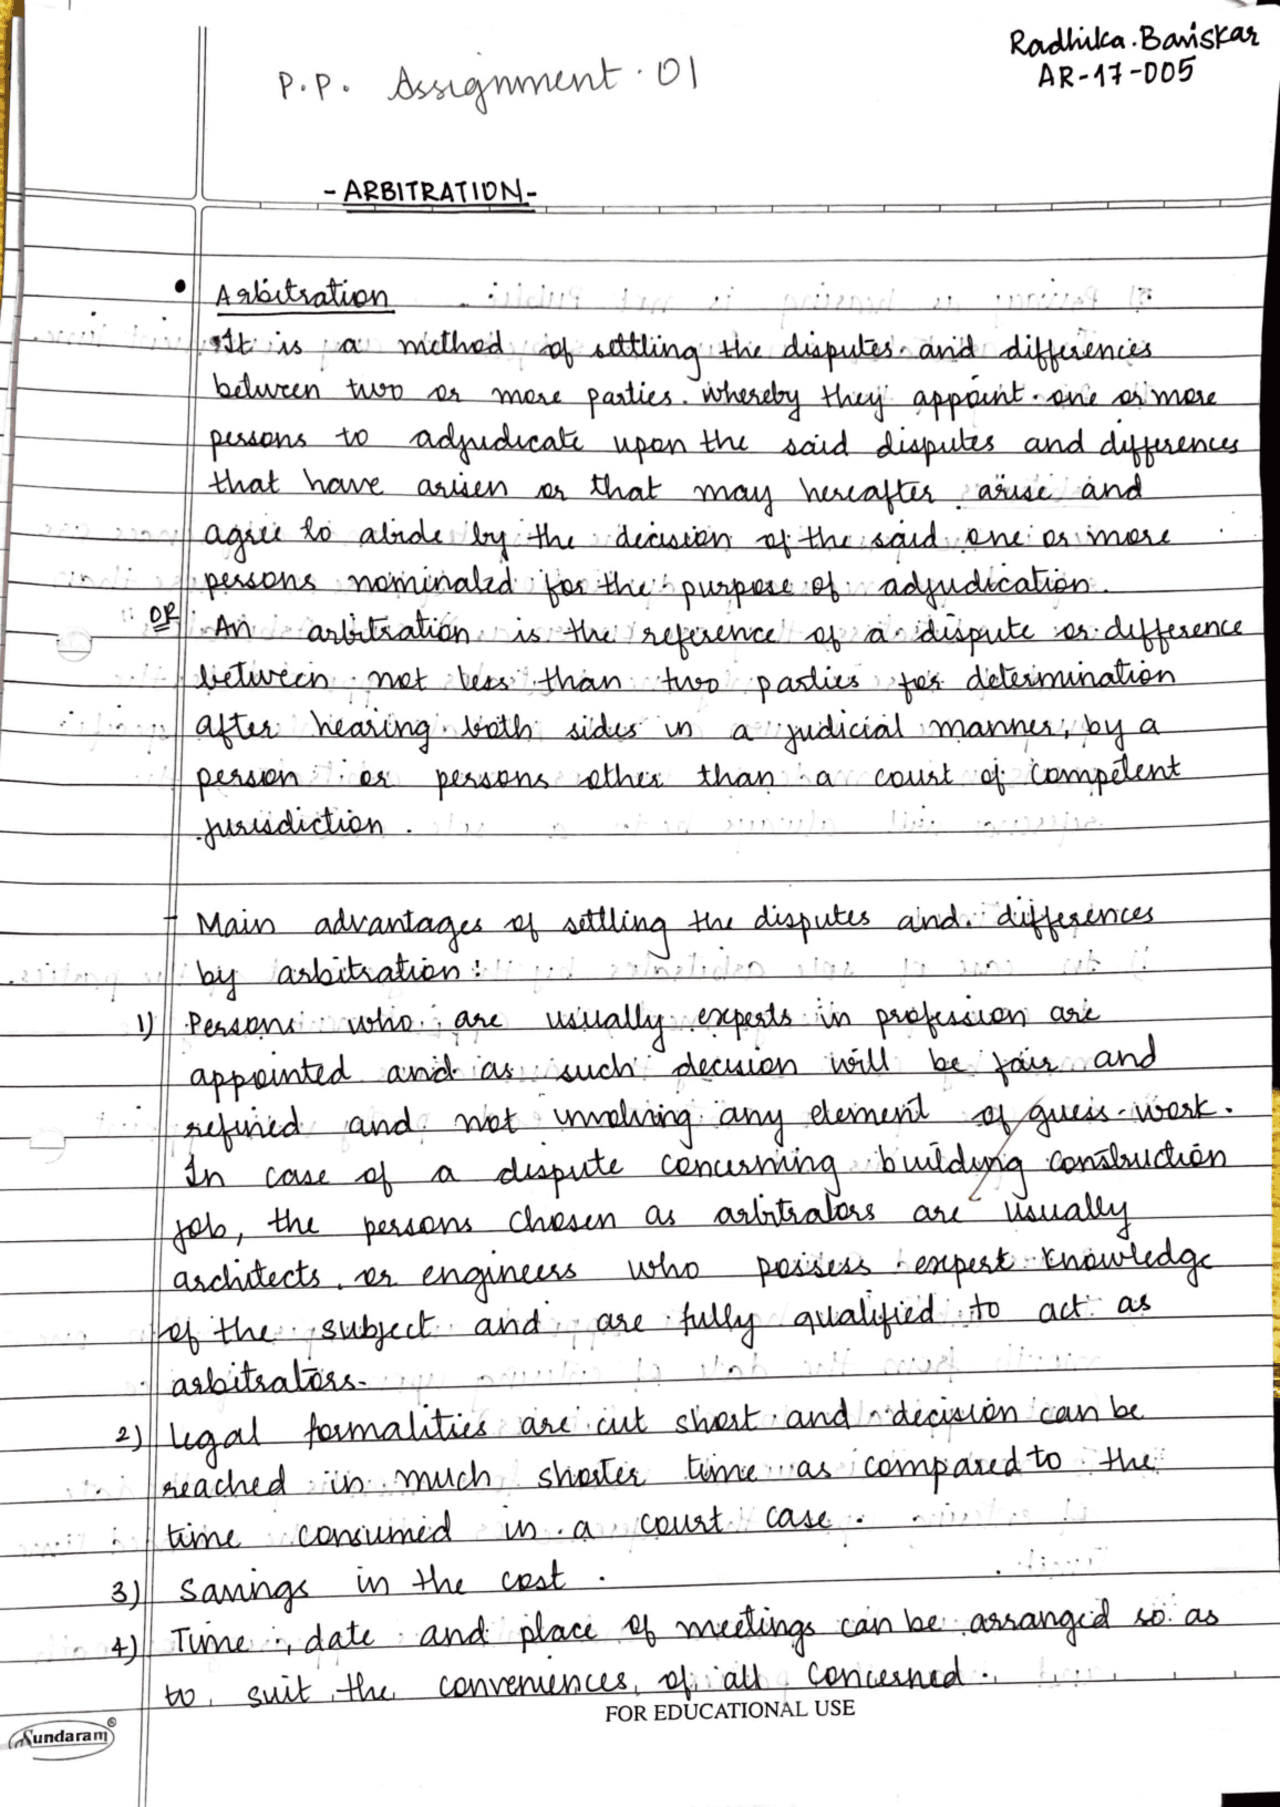 Radhika.Baviskar
AR-17-005
P.P. Assignment.01
- ARBITRATION -
• Arbitration
It is a method of settling the disputes and differences
between two or more parties. whereby they appoint one or more
persons to adjudicate upon the said disputes and differences
that have arisen or that may hereafter arise and
agree to abide by the decision of the said one or more
persons nominated for the purpose of adjudication.
OR An arbitration is the reference of a dispute or difference
between not less than two parties for determination
after hearing both sides in a judicial manner, by a
person or persons other than a court of competent
jurisdiction.
- Main advantages of settling the disputes and differences
by arbitration:
1) Persons who are usually experts in profession are
appointed and as such decision will be fair and
refined and not involving any element of guess-work.
In case of a dispute concerning building construction
job, the persons chosen as arbitrators are usually
architects or engineers who possess expert knowledge
of the subject and are fully qualified to act as
arbitrators.
2) Legal formalities are cut short and decision can be
reached in much shorter time as compared to the
time consumed in a court case.
3) Savings in the cost.
4) Time, date and place of meetings can be arranged so as
to suit the conveniences of all concerned.
FOR EDUCATIONAL USE
Sundaram